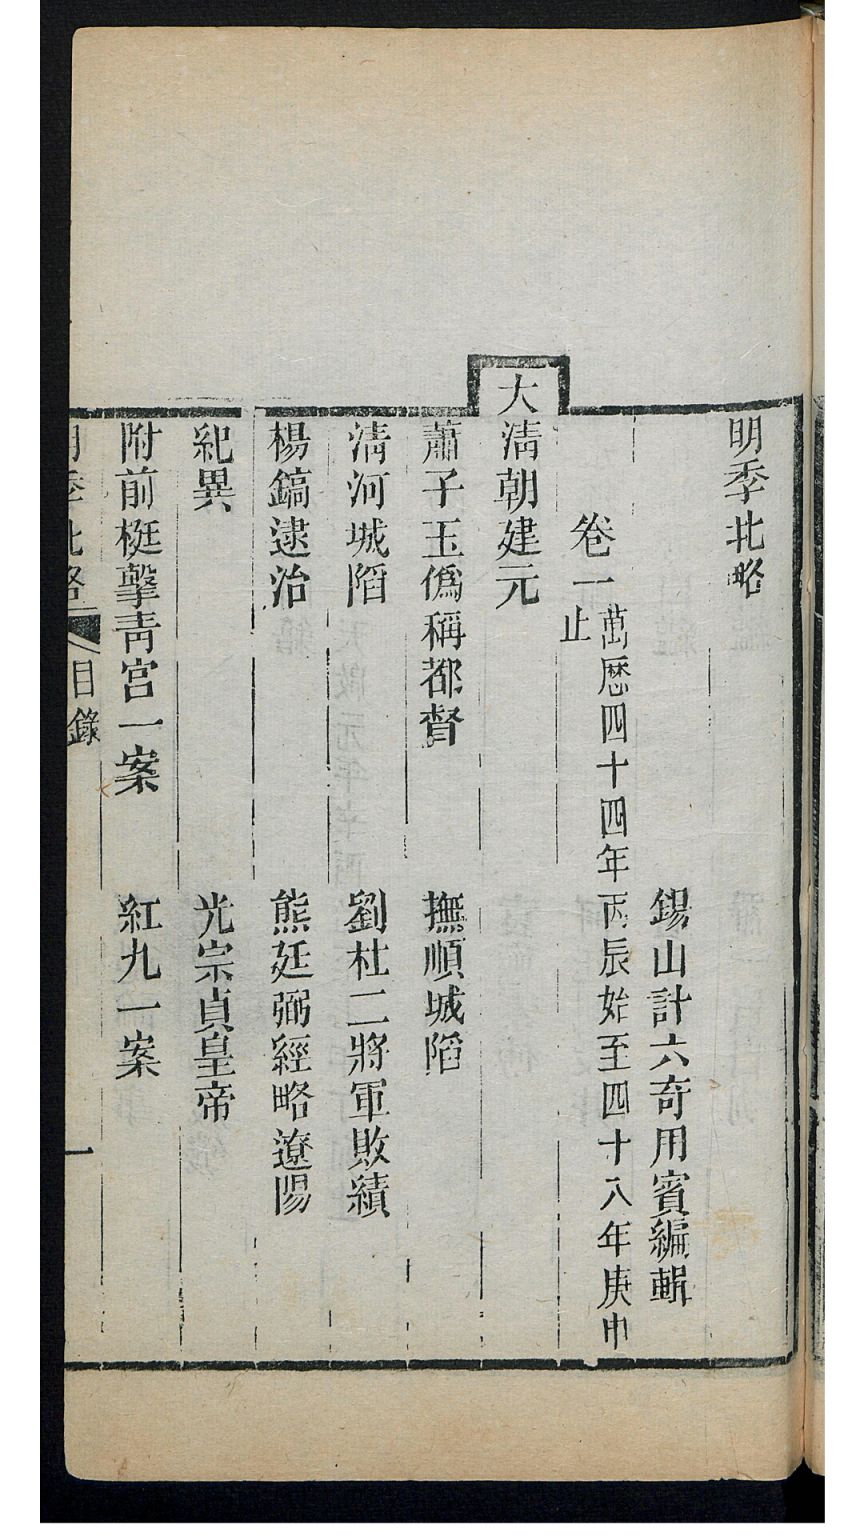 明季北略
錫山計六奇用賓編輯
卷一萬厯四十四年丙辰始至四十八年庚申止
大清朝建元
蕭子玉僞稱都督 撫順城陷
清河城陷 劉杜二將軍敗績
楊鎬逮治 熊廷弼經略遼陽
紀異 光宗貞皇帝
附前梃擊青宮一案 紅九一案
明季北略 目錄 一